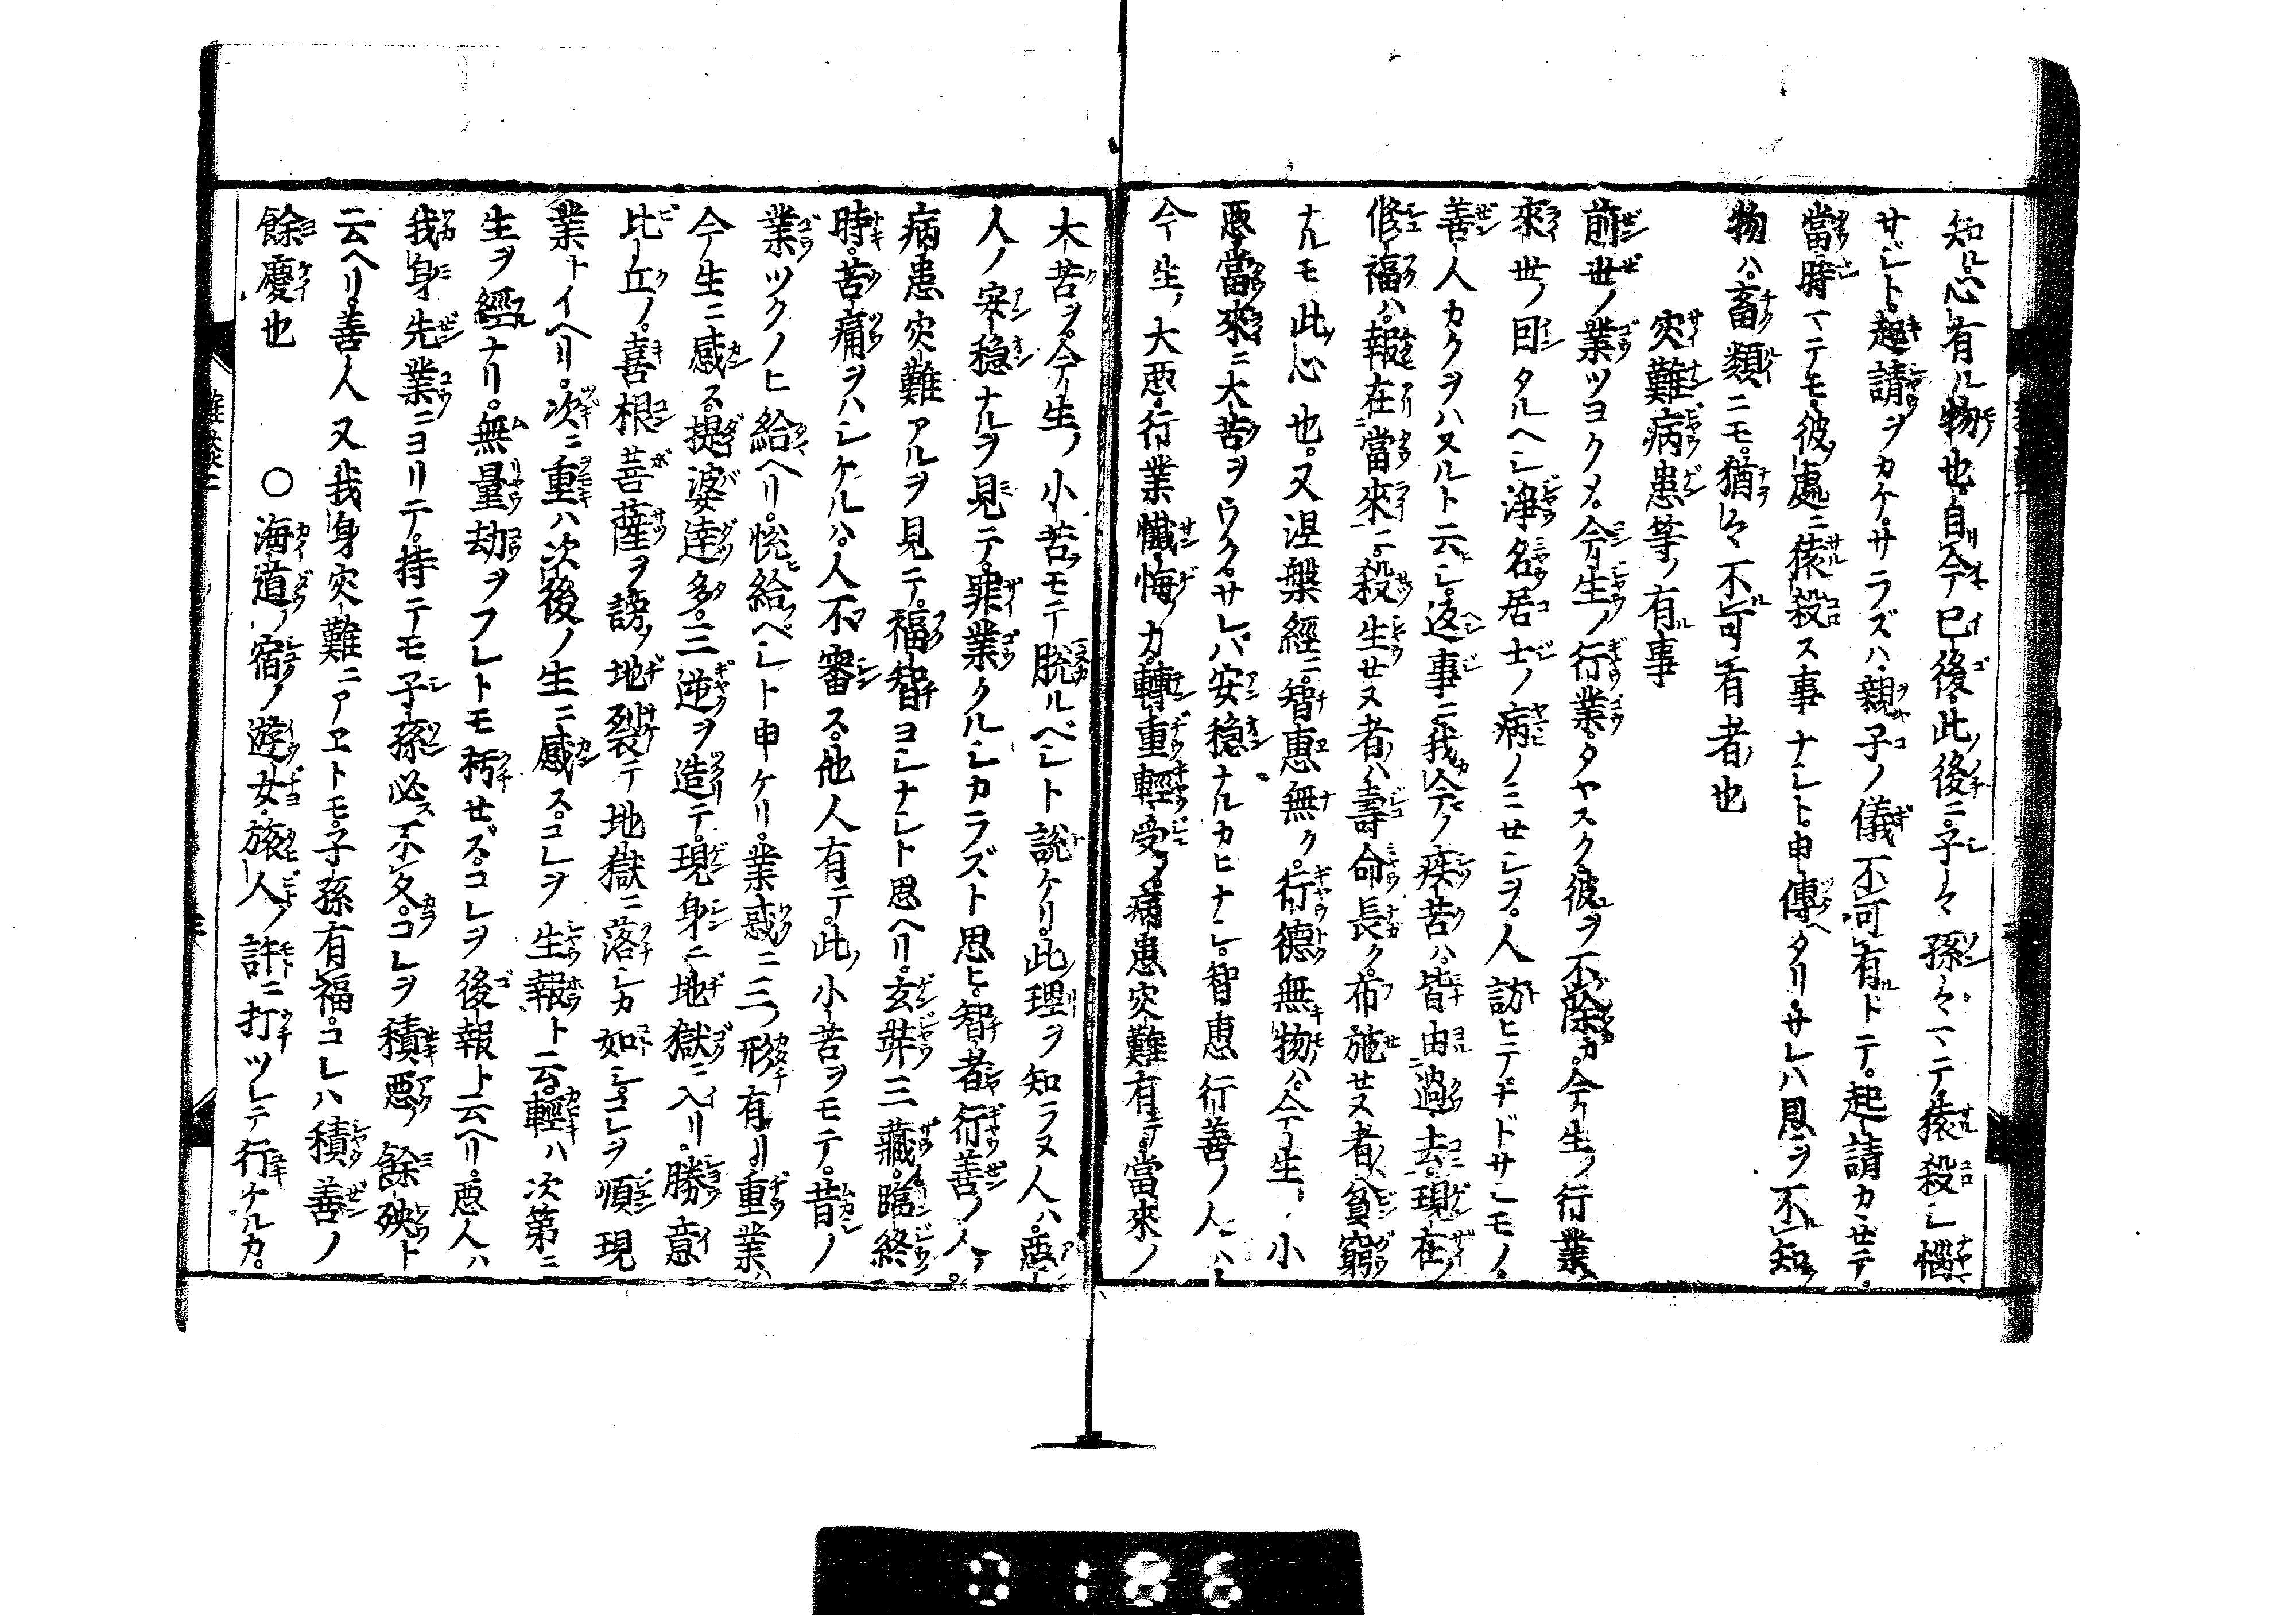 知ル心有ル物也。自今已後。此後ニ。子々孫々マテ。猿殺シ悩
サジト。起請ヲカケ。サラズハ。親子ノ儀不可有トテ。起請カヽセテ。
當時マテモ。彼處ニ猿殺ス事ナシト。申傳タリ。サレハ恩ヲ不知
物ハ。畜類ニモ。猶々不可有者也
災難病患等ノ有事
前世ノ業ツヨクメ。今生ノ行業。タヤスク。彼ヲ不除カ。今生ノ行業
來世ノ因タルヘシ。浄名居士ノ病ノミセシヲ。人訪ヒテ。ナドサシモノ。
善人カクヲハスルト云シ。返事ニ我今ノ疾苦ハ。皆由過去。現在ノ
修福ハ。報在當來ニ。殺生セヌ者ハ壽命長ク。布施セヌ者ハ貧窮
ナルモ此心也。又涅槃經ニ。智恵無ク。行德無物ハ。今生ノ小
悪當來ニ大苦ヲウク。サレバ安穏ナルカヒナシ。智恵行善ノ人ハ。
今生ノ大悪。行業懺悔ノカ。轉重輕受ノ病患災難有テ。當來ノ
大苦ヲ。今生ノ小苦モテ脱ルベシト説ケリ。此理ヲ知ラヌ人ハ。悪
人ノ安穏ナルヲ見テ。罪業クルシカラズト思ヒ。智者行善ノ人ノ。
病患災難アルヲ見テ。福智ヨシナシト思ヘリ。玄弉三藏。臨終ニ
時。苦痛ヲハシケルハ。人不審ス。他人有テ。此ノ小苦ヲモテ。昔ノ
業ツクノヒ給ヘリ。悦給ベシト申ケリ。業惑ニ三ノ形有リ。重業ハ
今生ニ感ス。提婆達多。三逆ヲ造テ。現身ニ地獄ニ入リ。勝意
比丘ノ。喜根菩薩ヲ謗ヲ地裂テ地獄ニ落シカ如シ。コレヲ順現
業トイヘリ。次ニ重ハ次後ノ生ニ感ス。コレヲ生報ト云。輕ハ次第ニ
生ヲ經ナリ。無量劫ヲフレトモ朽セズ。コレヲ後報ト云ヘリ。悪人ハ
我身先業ニヨリテ。持テモ子孫必ス不久。コレヲ積悪ノ餘殃ト
云ヘリ。善人又我身災難ニアエトモ。子孫有福。コレハ積善ノ
餘慶也　〇海道ノ宿ノ遊女。旅人ノ許ニ打ツレテ行ケルカ。
0186